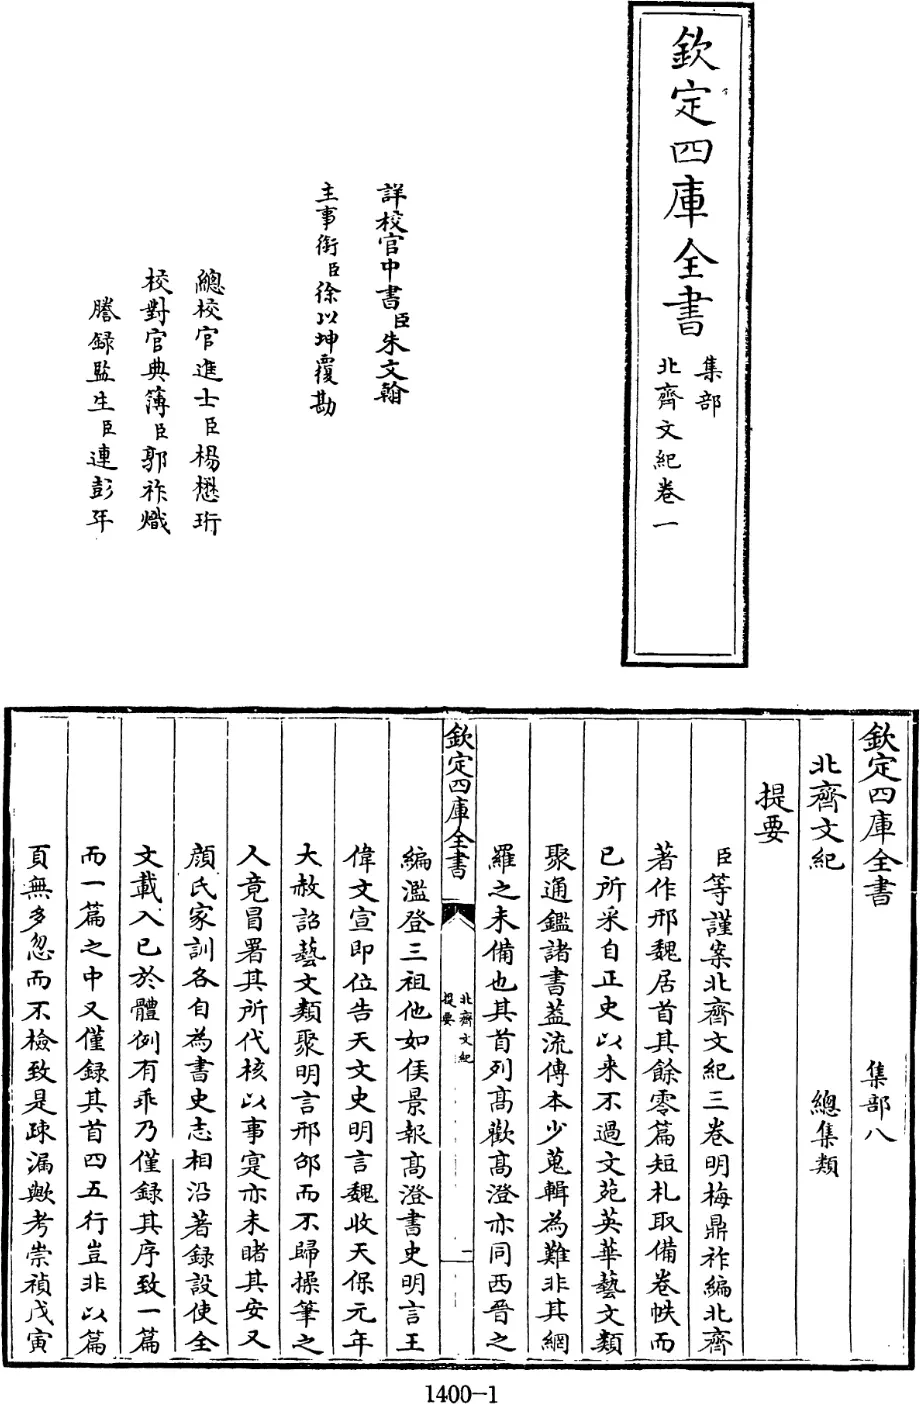 欽定四庫全書
集部
北齊文紀卷一
詳校官中書臣朱文翰
主事銜臣徐以坤覆勘
總校官進士臣楊懋珩
校對官典簿臣郭祚熾
謄録監生臣連彭年
欽定四庫全書
集部八
北齊文紀
總集類
提要
臣等謹案北齊文紀三卷明梅鼎祚編北齊
著作邢魏居首其餘零篇短札取備卷帙而
已所采自正史以来不過文苑英華藝文類
聚通鑑諸書葢流傳本少蒐輯為難非其網
羅之未備也其首列髙歡髙澄亦同西晉之
欽定四庫全書
北齊文紀
提要
二
編濫登三祖他如侯景報髙澄書史明言王
偉文宣即位告天文史明言魏收天保元年
大赦詔藝文類聚明言邢邵而不歸操筆之
人竟冒署其所代核以事寔亦未睹其安又
顔氏家訓各自為書史志相沿著録設使全
文載入已於體例有乖乃僅録其序致一篇
而一篇之中又僅録其首四五行豈非以篇
頁無多忽而不檢致是疎漏歟考崇禎戊寅
1400-1